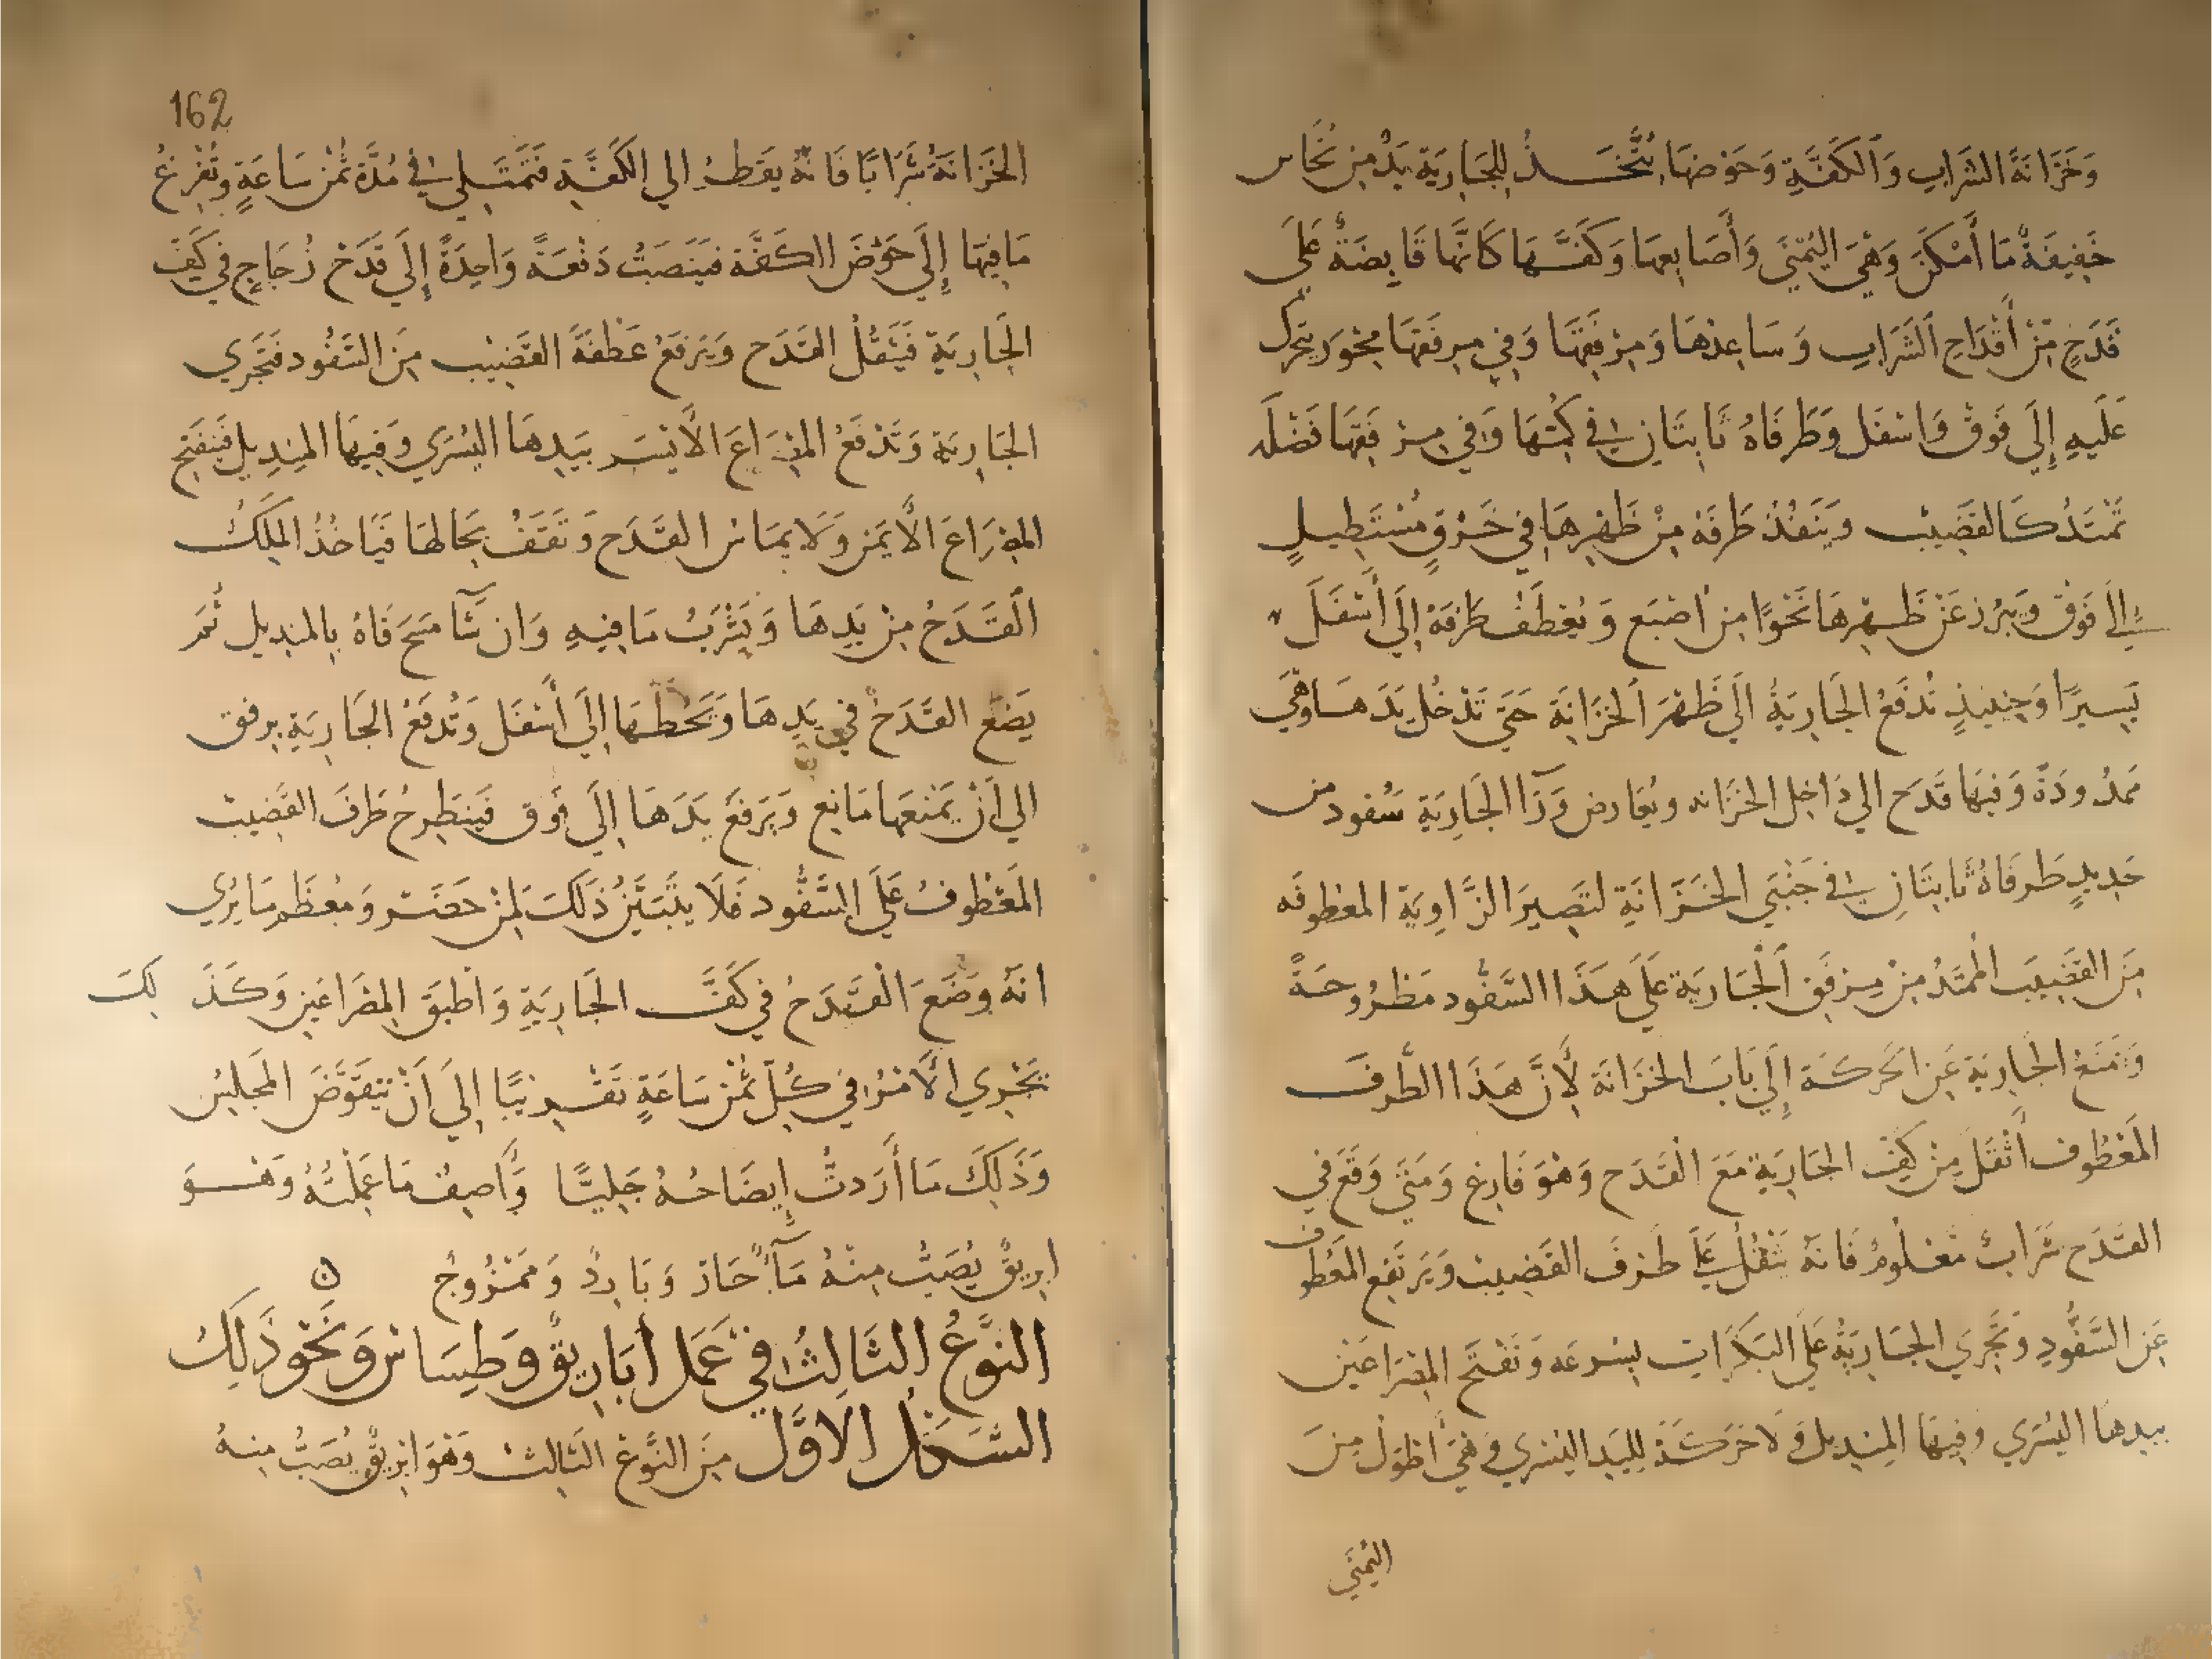 وَخَزَانَةً الشَرَابِ وَالكَفَّةِ وَحَوْضهَا يُتَّخَــذُ لِلجَارِيَة يَدٌ مِن نُحَاس
خَفِيفَةٌ مَا أَمْكَنَ وَهْيَ اليُمْنَى وَأَصَابِعهَا وَكَفّــهَا كَانَّهَا قَابِضَةٌ عَلَى
قَدَحٍ مِّنْ أَقْدَاحِ الشَرَابِ وَسَاعِدهَا وَمِرْفقهَا وَفِي مِرفَقهَا مِحْوَر يتحرك
عَلَيهِ إِلَى فَوْق وَاسْفَل وَطَرفَاهُ ثَابِتَانِ فِي كُمّهَا وَفي مِرْفَقِهَا فَضْلَه
تَمْتَدُّ كَالقَضِيْب وَيَنفُذْ طَرفَه مِنْ ظَهْرِهَا فِي خَرْقٍ مُسْتَطِيلٍ
إِلَى فَوْق وَيَبْرُز عَنْ ظَــهْرِهَا نَحْوًا مِن اصْبَع وَيُعْطَفُ طَرْفَهُ إِلَى أَسْفَلَ
يَسِيرًا وَحِينَيذٍ تُدفَعُ الجَارِيَةُ الَى ظَهْرَ الخَزَانَة حَتَى تَدْخُل يَدَهَــا وَهْيَ
مَمْدُودَةٌ وَفيهَا قَدَح الي دَاخِل الخزَانه ويُعَارض وَرَآ الجَارِيَةِ سَفُود من
حَدِيدٍ طَرفَاهُ ثَابِتَانِ فِي جَنْبَي الخَــزَانَةِ لتَصِيرَ الزَّاوِيَةِ المعطوفَه
مِنَ القَضِيبَ المُمْتَدُ مِنْ مِرْفَق الْجَارِيَة عَلَى هَذَا السَفُّود مَطْرُوحَــةً
وَتمنَعْ الجَاريَةِ عَنِ الحَركَة إِلَى بَابَ الخزَانَة لِأَنَّ هَذَا الطَّرفَ
المَعْطُوف أَثْقَلَ مِنْ كَفّ الجَارِيَةِ مَعَ الْقَدَح وَهْوَ فَارِغ وَمَتَى وَقَعَ فِي
القَدَح شَرَابٌ مَعْلُومٌ فَانهُ يَثْقُلُ عَلَى طَرَفَ القَضِيب وَيَرتَفِع المَعْطُوف
عَنِ السَّفُّودِ وَتَجْرِي الجَارِيَةُ عَلَى البَكَرَات بسُرعَه وَتَفتَح المِصْرَاعَيْن
بيدهَا اليُسْرَي وَفِيهَا المِنديل وَلَا حَرَكَةَ لِليَد اليُسْري وَهيَ أطوَل مِنَ
اليُمْنَى
162
الخَزَانَةُ شَرَابًا فَانهُ يَقطُر الي الكَفَّةِ فَتَمْتَــلِي فِي مُدَّة ثُمْن سَاعَةٍ وَتُفْرِغُ
مَا فِيهَا إِلَى حَوْضَ الكَفَّة فَيَنصَبُّ دَفْعَةً وَاحِدَةً إِلَى قَدَح زُجَاجٍ فِي كَفّ
الجَارِيَةِ فَيَثقُلُ القَدَح وَيَرْفَعُ عَطْفَةَ القَضِيْب مِنَ السَّفُّود فَتَجْرِي
الجَارِيَة وَتَدْفَعُ المِصْرَاعَ الأَيْسَر بيَدِهَا اليُسْرَي وَفِيهَا المِنْدِيل فَينفَتِح
المِصْرَاعَ الأَيمَن وَلَا يمَاسُ القَدَح وَتَقَفُ بحَالِهَا فَيَاخُذُ المَلِكُ
القَدَحُ مِنْ يَدِهَا وَيَشْرَبُ مَا فِيهِ وَان شَآ مَسَحَ فَاهُ بِالمندِيل ثُمّ
يَضَع القَدَحُ فِي يَدِهَا وَيَحُطــهَا إِلَى أَسْفَل وَتُدفَعُ الجَارِيَةِ برفق
الي أَنْ يَمْنَعهَا مَانِع وَيَرفَعَ يَدَهَا إِلَى فَوق فَيَنطَرِحُ طَرفَ القَضِيب
المَعْطُوفُ عَلَى السَّفُّود فَلَا يَتَبَيَّنُ ذَلكَ لِمَنْ حَضَرَ وَمُعْظَم مَا يُرَي
انهُ وَضَعَ القَدَحُ فِي كَفِّ الجَارِيَةِ وَاطْبَقَ المِصْرَاعَيْن وَكَذَلِكَ
يَجْرِي الأَمْرُ فِي كُلّ ثُمْن سَاعَةٍ تَقْــرِيبًا إِلَى أَنْ يَتَقَوَّضَ المَجلِسُ
وَذَلِكَ مَا أَرَدتُّ إِيضَاحُهُ جَلِيًّا وَأَصِفُ مَا عَمِلْتُهُ وَهْــوَ
ابريقٌ يُصَبُّ مِنْهُ مَآءٌ حَارّ وَبَارِدٌ وَمَمْزُوجٌ ن
النَّوْعُ الثَالِثُ فِي عَمَل أَبَارِيقٌ وَطِسَاسْ وَنَحْو ذَلِكَ
الشَكْلُ الأَوَّل مِنَ النَّوْعْ الثَالِث وَهْوَ ابْرِيقٌ يُصَبُّ مِنهُ